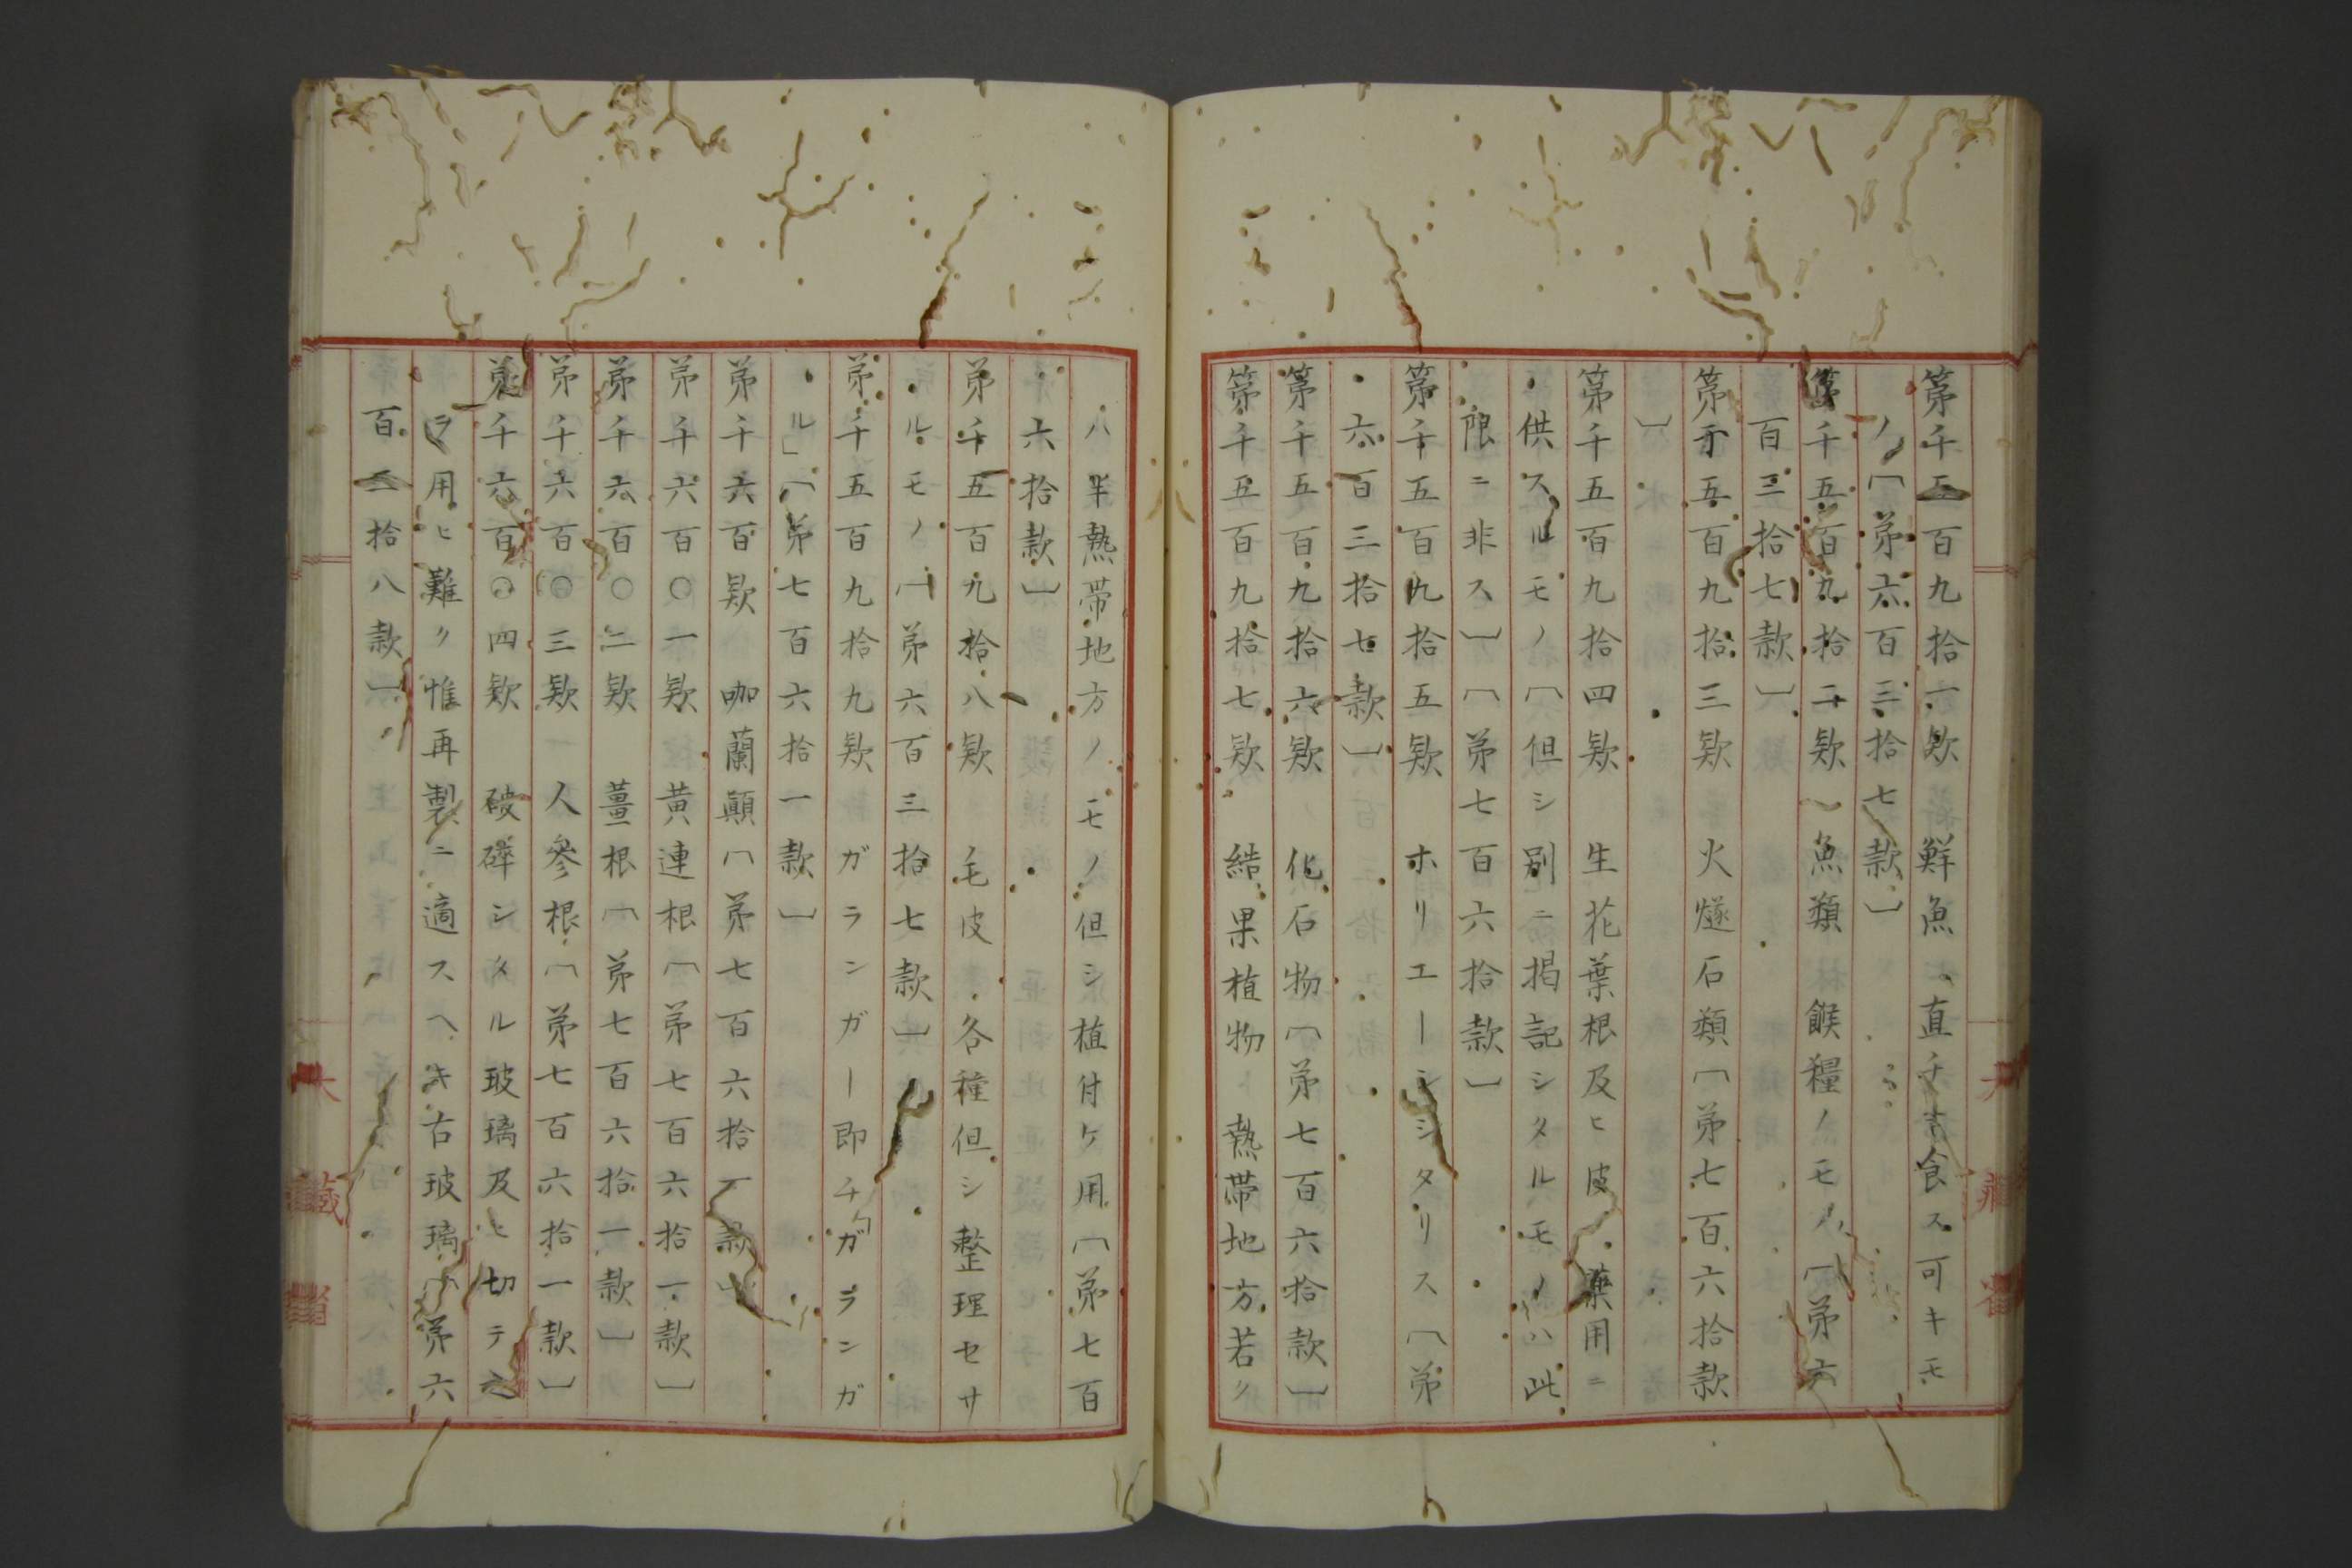 第千五百九拾一欵 鮮魚、直チニ食ス可キモ
ノ〔第六百三拾七款〕
第千五百九拾二欵 魚類 餱糧ノモノ〔第六
百三拾七款〕
第千五百九拾三欵 火燧石類〔第七百六拾款
〕
第千五百九拾四欵 生花葉根及ヒ皮 藥用ニ
供スルモノ〔但シ別ニ掲記シタルモノハ此
限ニ非ス〕〔第七百六拾款〕
第千五百九拾五欵 ホリエーシシタリス〔第
六百三拾七款〕
第千五百九拾六欵 化石物〔第七百六拾款〕
第千五百九拾七欵 結果植物 熱帶地方若ク
ハ半熱帶地方ノモノ但シ植付ケ用〔第七百
六拾款〕
第千五百九拾八欵 毛皮 各種但シ整理セサ
ルモノ〔第六百三拾七款〕
第千五百九拾九欵 ガランガー即チガランガ
ル」〔第七百六拾一款〕
第千六百欵 咖蘭顚〔第七百六拾一款〕
第千六百〇一欵 黄連根〔第七百六拾一款〕
第千六百〇二欵 薑根〔第七百六拾一款〕
第千六百〇三欵 人參根〔第七百六拾一款〕
第千六百〇四欵 破碎シタル玻璃及ヒ切テ
ラ用ヒ難ク惟再製ニ適スヘキ古玻璃〔第六
百三拾八款〕
大藏省
大藏省